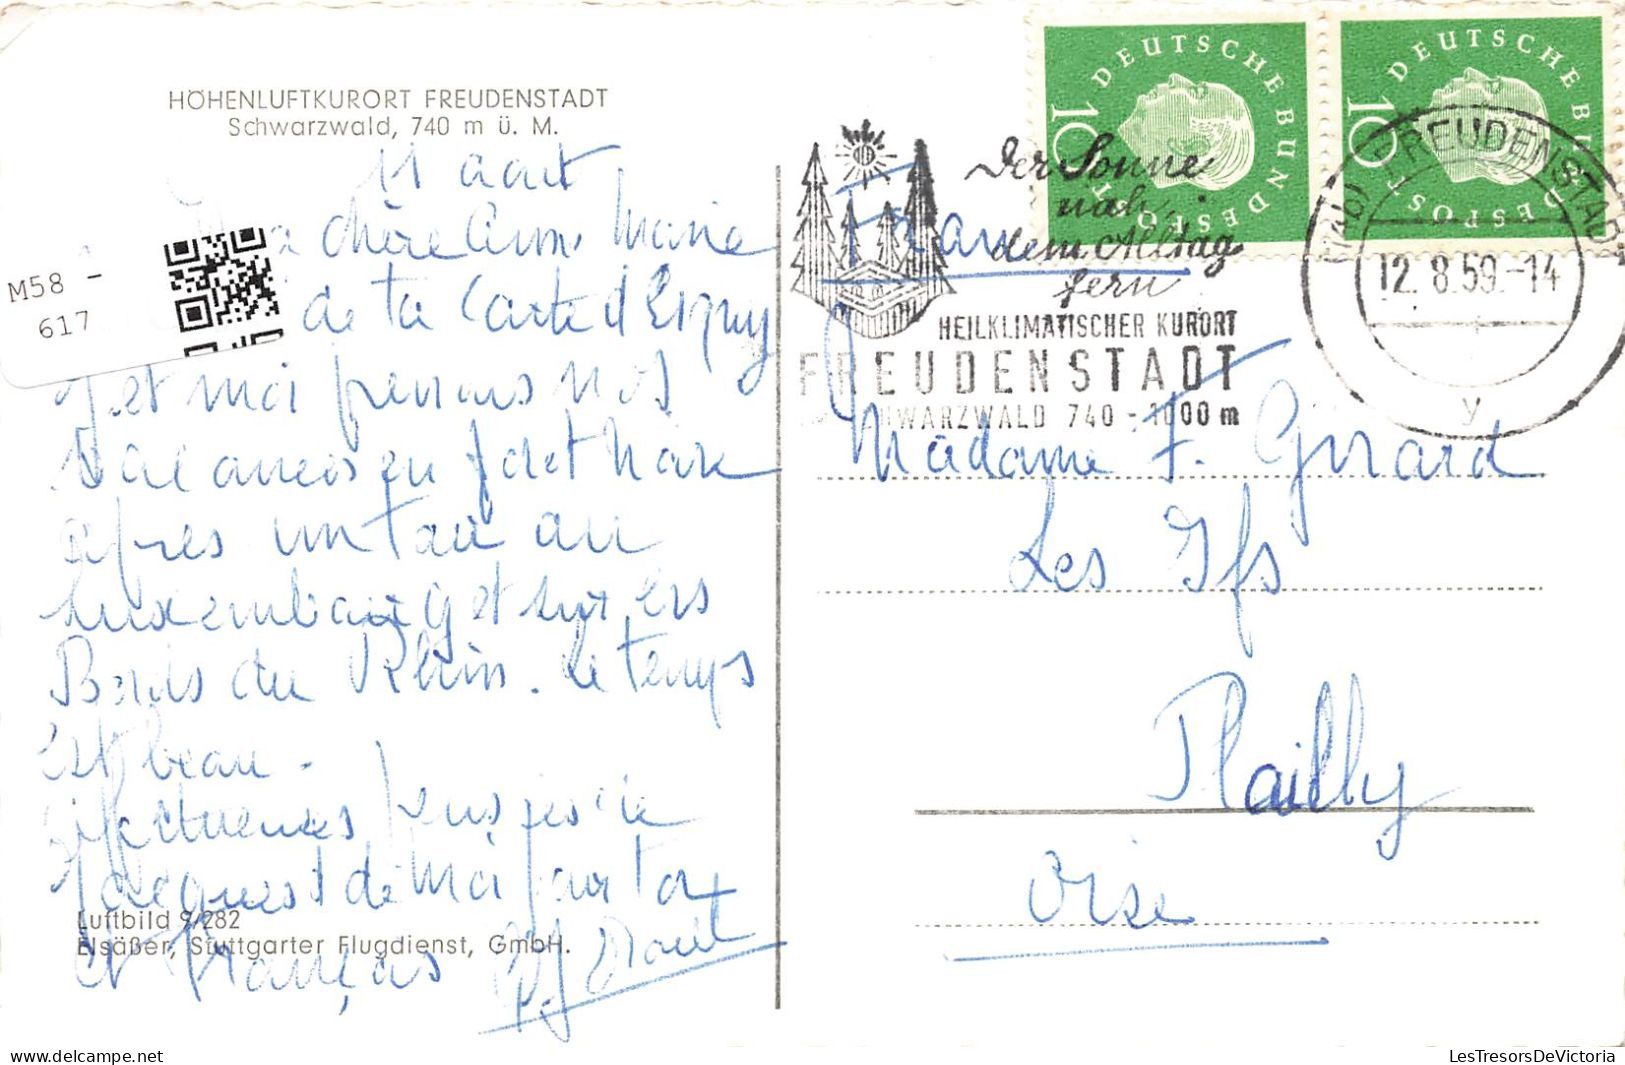 HÖHENLUFTKURORT FREUDENSTADT
Schwarzwald, 740 m ü. M.
M58 -
617
11 août
chère Anne Marie
de ta Carte d'Erquy
J. et moi prenons nos
vacances en forêt Noire
après un tour au
Luxembourg et sur les
Bords du Rhin. Le temps
est beau.
Affectueuses pensées de
Jacques et de moi pour toi
et François
Luftbild 9/282
Elsäßer, Stuttgarter Flugdienst, GmbH.
DEUTSCHE BUNDESPOST
10
DEUTSCHE BUNDESPOST
10
Der Sonne
nah,
dem Alltag
fern
HEILKLIMATISCHER KURORT
FREUDENSTADT
SCHWARZWALD 740 - 1000 m
FREUDENSTADT
12.8.59.-14
y
Madame F. Girard
Les Ifs
Plailly
Oise
delcampe.net
LesTresorsDeVictoria